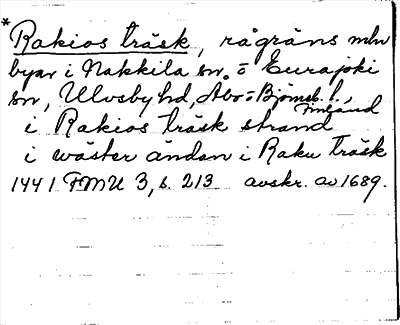 * Rakios träsk, rågräns mln
byar i Nakkila sn. o Eurajoki
sn, Ulvsby hd, Åbo o Björneb. l.,
Finland
i Rakios träsk strand
i wäster ändan i Raku träsk
1441 FMU 3, s. 213 avskr. av 1689.